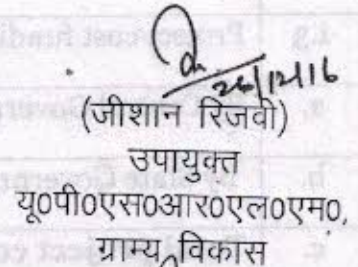 26/12/16
(जीशान रिजवी)
उपायुक्त
यू0पी0एस0आर0एल0एम0,
ग्राम्य विकास